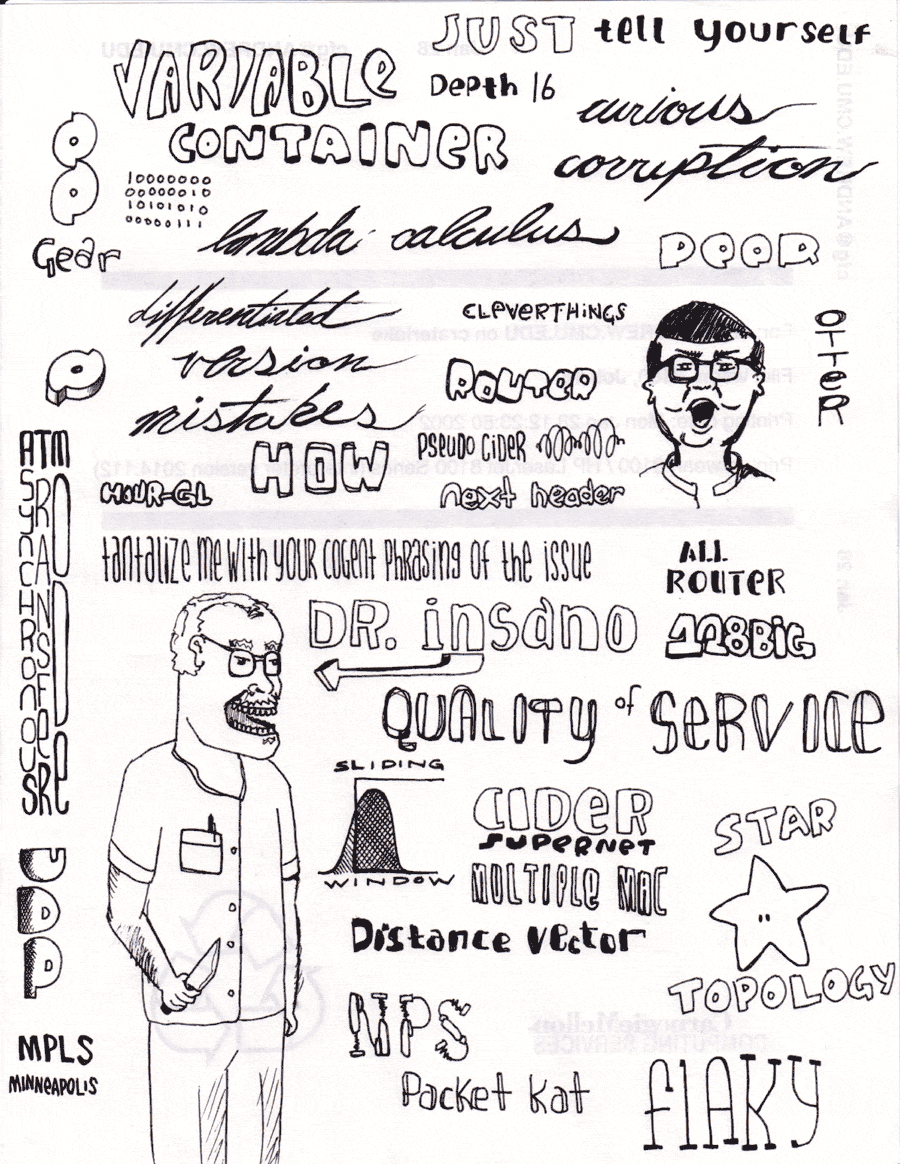 JUST tell yourself
VARIABLE
Depth 16
CONTAINER
curious
corruption
10000000
00000010
10101010
00000111
Gear
lambda calculus
PeeR
differentiated
version
mistakes
CLeVeRTHiNGS
ROUTER
OTTeR
ATM
ASYNCHRONOUS
TRANSFER
MODE
HOUR-GL
HOW
PSEUDO CIDER
next header
tantalize me with your cogent phrasing of the issue
ALL
ROUTER
DR. insano
128BiG
QUALITY of SeRVICe
SLIDING
WINDOW
CIDER
SUPERNET
MULTIPLE MAC
STAR
TOPOLOGY
Distance Vector
UDP
MPLS
MINNeAPOLIS
NPS
Packet Kat
flAKY
CarnegieMellon
COMPUTING SERVICES